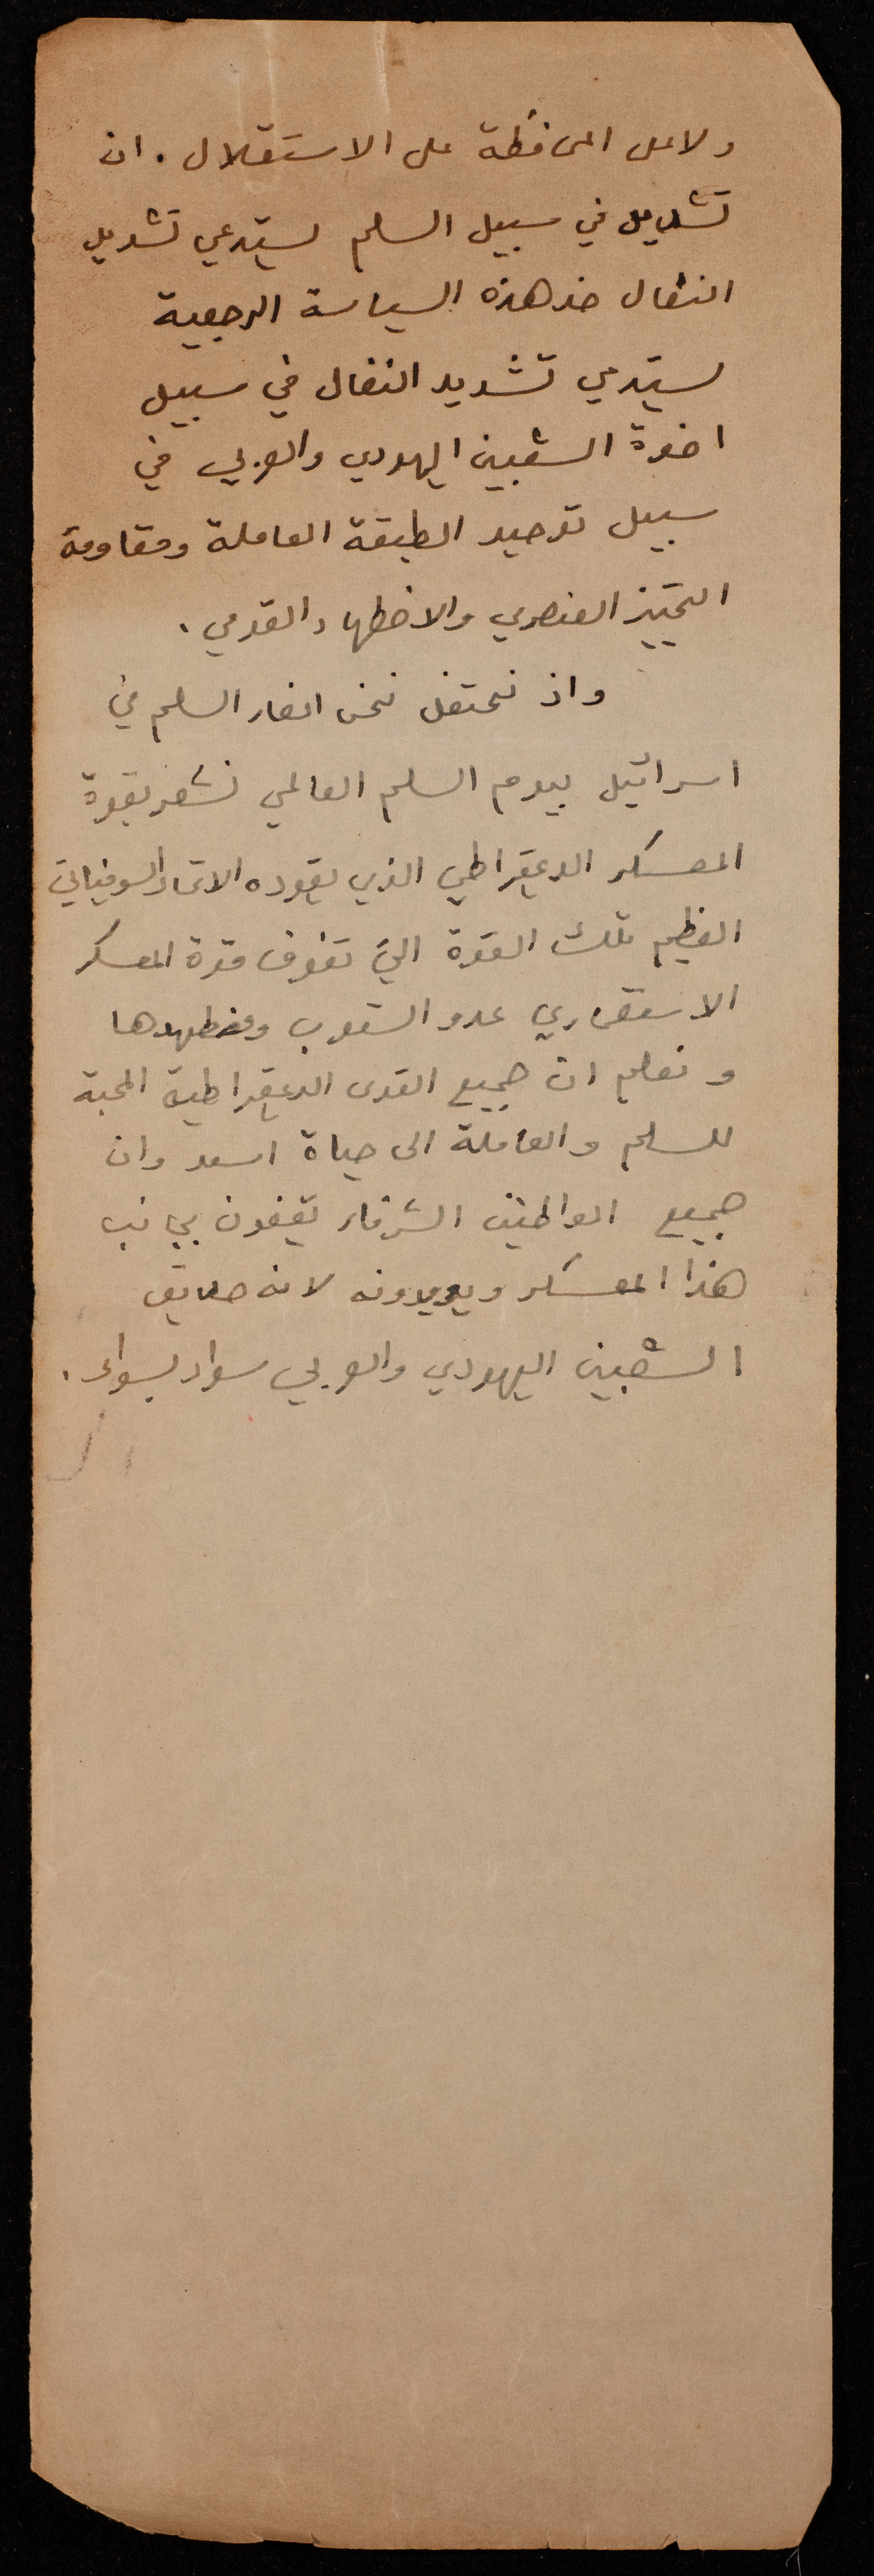 ولا على المحافظة على الاستقلال . ان
تشديد في سبيل السلم يستدعي تشديد
النضال ضد هذه السياسة الرجعية
يستدعي تشديد النضال في سبيل
اخوة الشعبين اليهودي والعربي في
سبيل توحيد الطبقة العاملة ومقاومة
التمييز العنصري والاضطهاد القومي .
واذ نحتفل نحن انصار السلم في
اسرائيل بيوم السلم العالمي نشعر بقوة
المعسكر الديمقراطي الذي يقوده الاتحاد السوفياتي
العظيم تلك القوة التي تفوق قوة المعسكر
الاستعماري عدو الشعوب ومضطهدها
ونعلم ان جميع القوى الديمقراطية المحبة
للسلم والعاملة الى حياة اسعد وان
جميع المواطنين الشرفاء يقفون بجانب
هذا المعسكر ويؤيدونه لانه صديق
الشعبين اليهودي والعربي سواء بسواء .